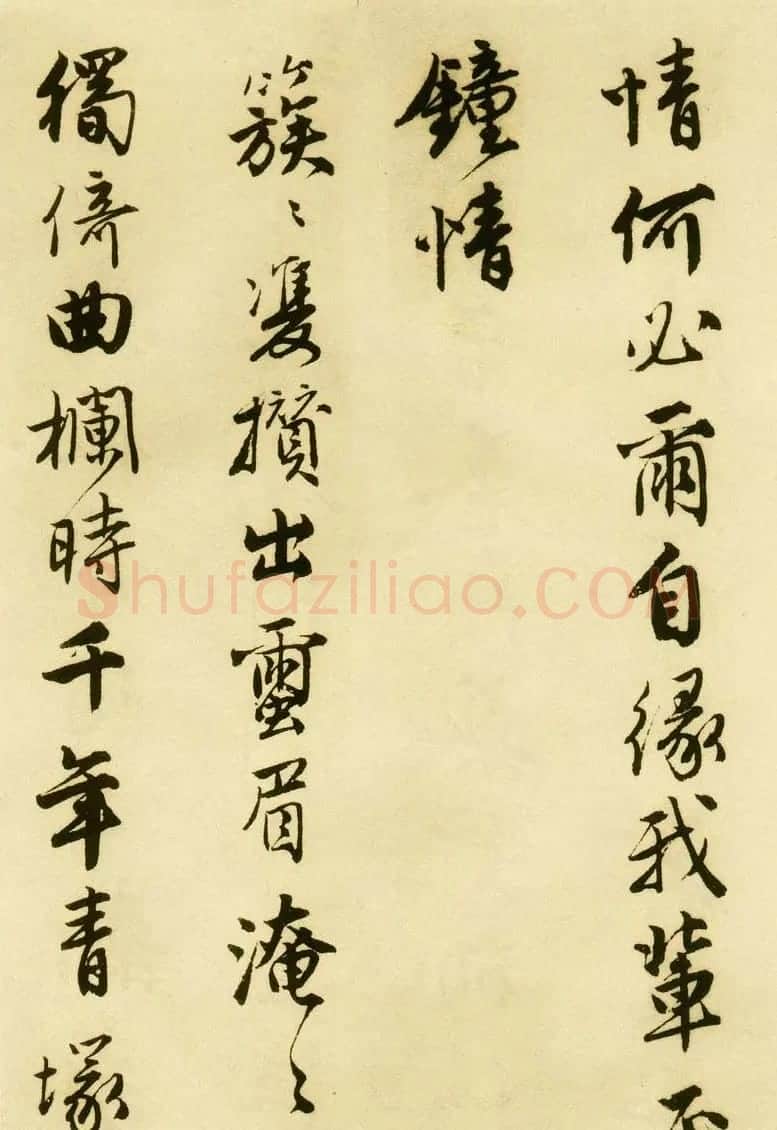 情何必爾自緣我輩不
鐘情
簇〻雙攢出蠒眉淹〻
獨倚曲欄時千年青塚
Shufaziliao.COM